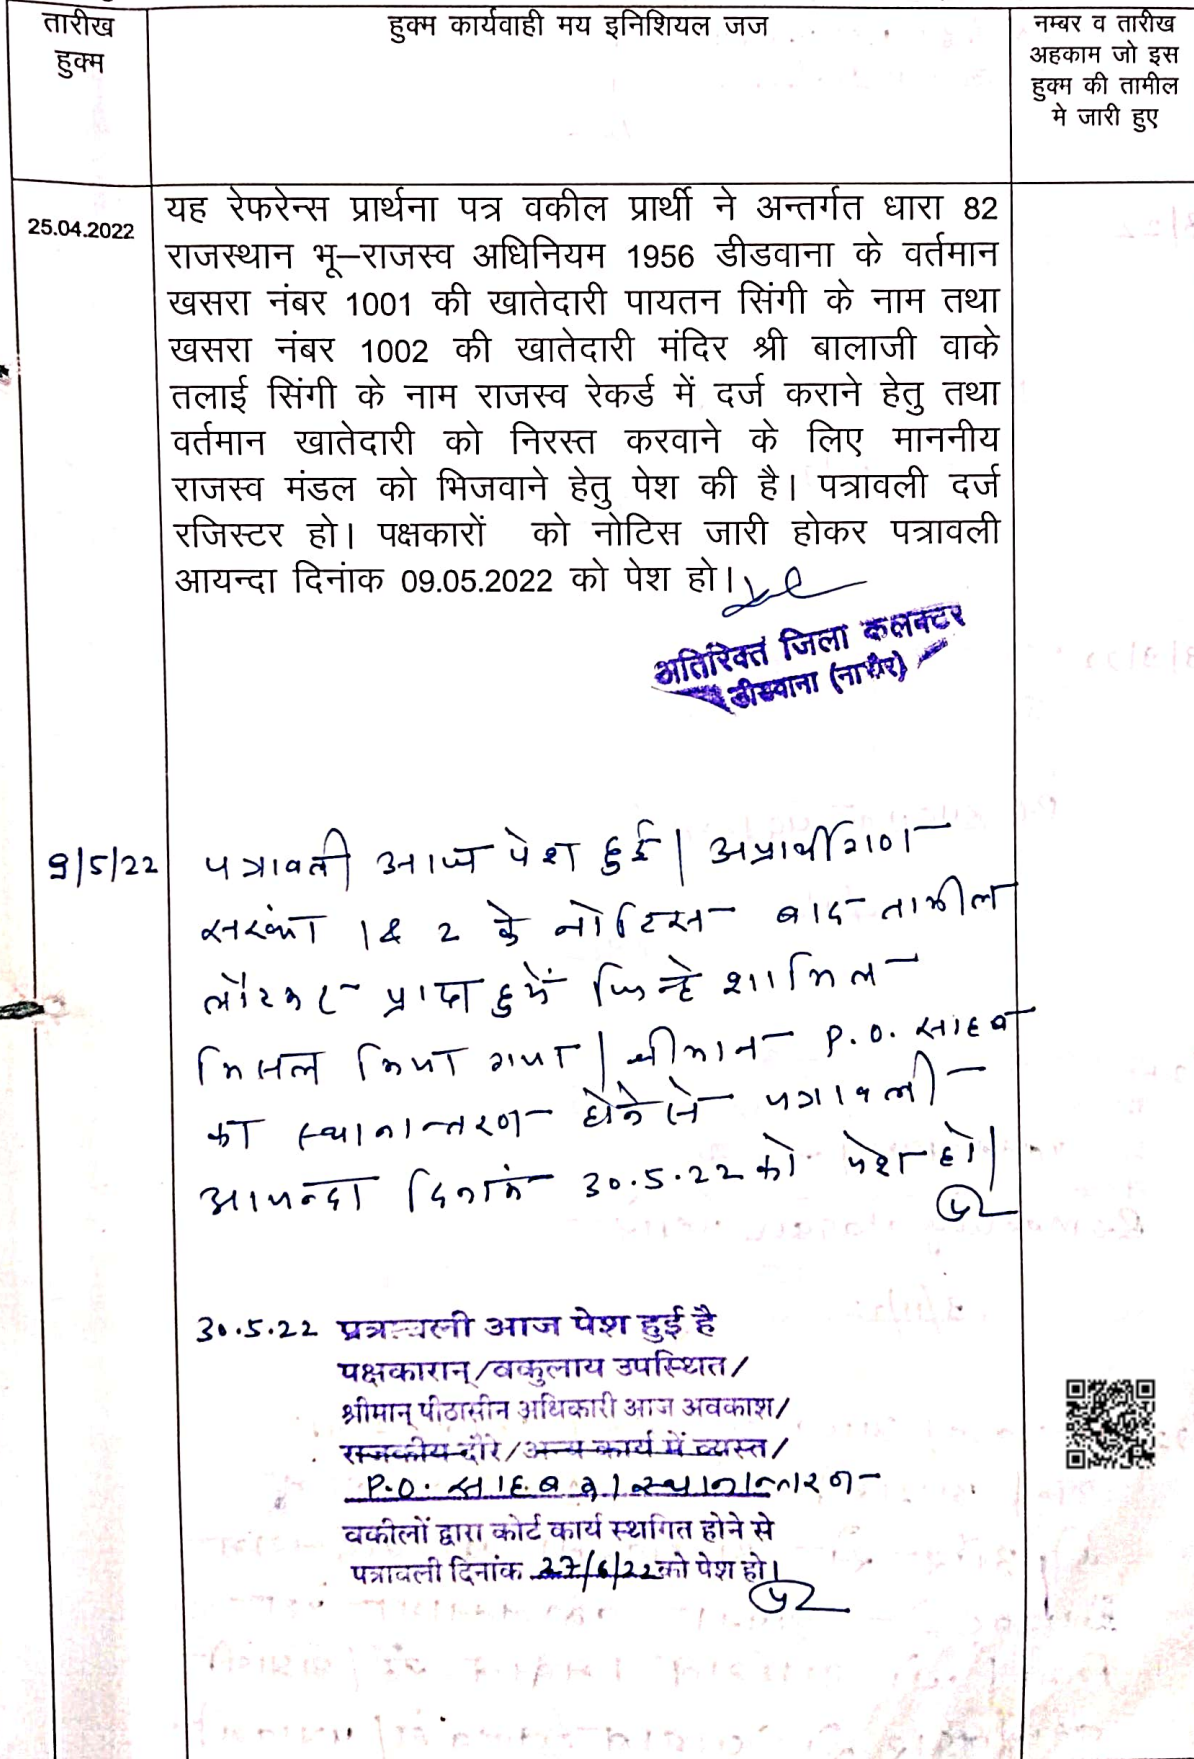 तारीख
हुक्म
हुक्म कार्यवाही मय इनिशियल जज
नम्बर व तारीख
अहकाम जो इस
हुक्म की तामील
मे जारी हुए
25.04.2022
यह रेफरेन्स प्रार्थना पत्र वकील प्रार्थी ने अन्तर्गत धारा 82
राजस्थान भू–राजस्व अधिनियम 1956 डीडवाना के वर्तमान
खसरा नंबर 1001 की खातेदारी पायतन सिंगी के नाम तथा
खसरा नंबर 1002 की खातेदारी मंदिर श्री बालाजी वाके
तलाई सिंगी के नाम राजस्व रेकर्ड में दर्ज कराने हेतु तथा
वर्तमान खातेदारी को निरस्त करवाने के लिए माननीय
राजस्व मंडल को भिजवाने हेतु पेश की है। पत्रावली दर्ज
रजिस्टर हो। पक्षकारों को नोटिस जारी होकर पत्रावली
आयन्दा दिनांक 09.05.2022 को पेश हो।
अतिरिक्त जिला कलक्टर
डीडवाना (नागौर)
9/5/22 पत्रावली आज पेश हुई। अप्रार्थीगण
1 & 2 के नोटिस बाद तामील
लौटकर प्राप्त हुये जिन्हे शामिल
मिसल किया गया। श्रीमान P.O. साहब
का स्थानान्तरण होने से पत्रावली
आयन्दा दिनांक 30.5.22 को पेश हो।
30.5.22 पत्रावली आज पेश हुई है
पक्षकारान्/वकुलाय उपस्थित/
श्रीमान् पीठासीन अधिकारी आज अवकाश/
राजकीय दौरे/अन्य कार्य में व्यस्त/
P.O. साहब का स्थानान्तरण
वकीलों द्वारा कोर्ट कार्य स्थगित होने से
पत्रावली दिनांक 27/6/22 को पेश हो।